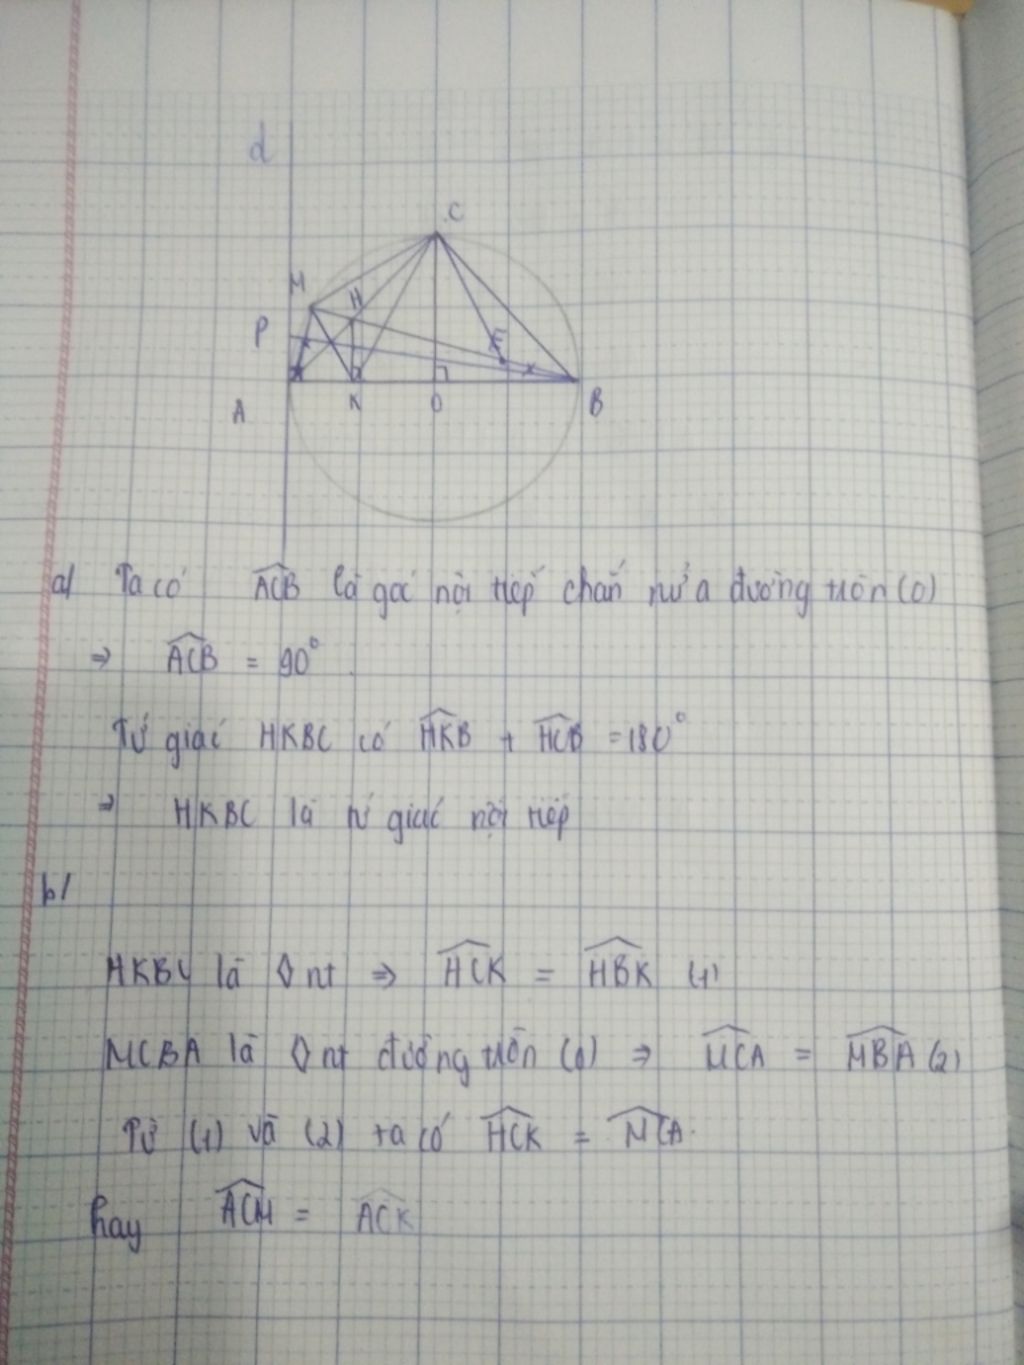 d
C
M
H
P
E
A
K
O
B
a) Ta có ACB là góc nội tiếp chắn nửa đường tròn (O)
⇒ ACB = 90°.
Tứ giác HKBC có HKB + HCB = 180°
⇒ HKBC là tứ giác nội tiếp
b/
HKBC là ◊ nt ⇒ HCK = HBK (1)
MCBA là ◊ nt đường tròn (O) ⇒ MCA = MBA (2)
Từ (1) và (2) ta có HCK = MCA.
hay ACM = ACK